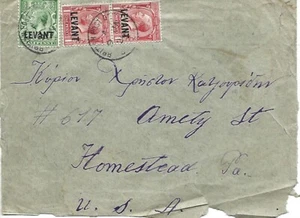 LEVANT LEVANT LEVANT
Κύριον Χρηστον Κατζουρίδην
# 617 Amety St
Homestead. Pa.
U. S. A.